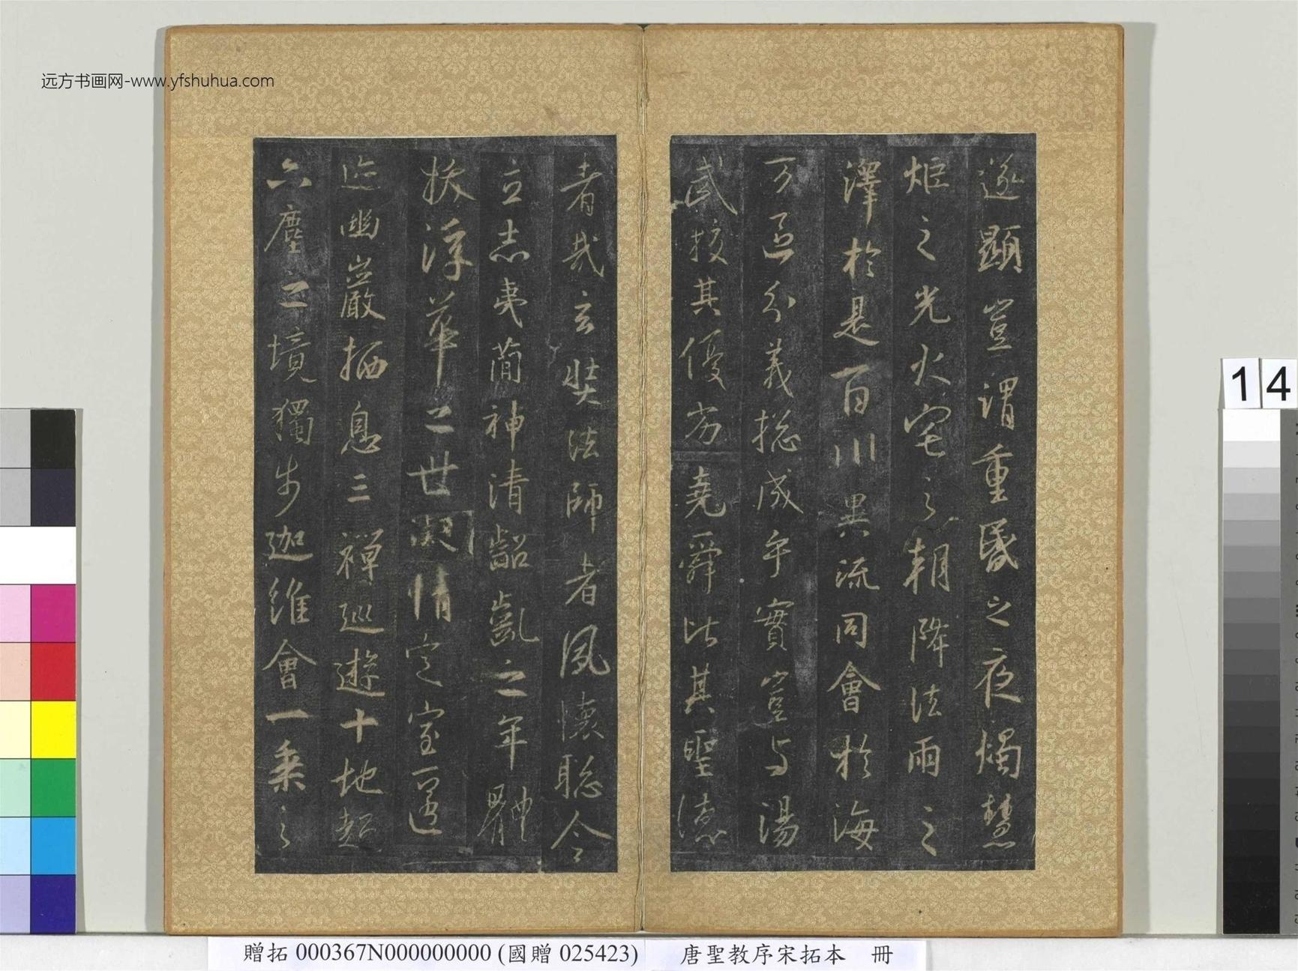 远方书画网-www.yfshuhua.com
遂顯豈謂重昏之夜燭慧
炬之光火宅之朝降法雨之
澤於是百川異流同會於海
万區分義揔成乎實豈与湯
武挍其優劣堯舜比其聖德
者哉玄奘法師者夙懷聡令
立志夷簡神清齠齓之年體
拔浮華之世凝情定室匿
迹幽巖栖息三禪巡遊十地超
六塵之境獨步迦維會一乘之
14
贈拓 000367N000000000 (國贈 025423) 唐聖教序宋拓本 冊